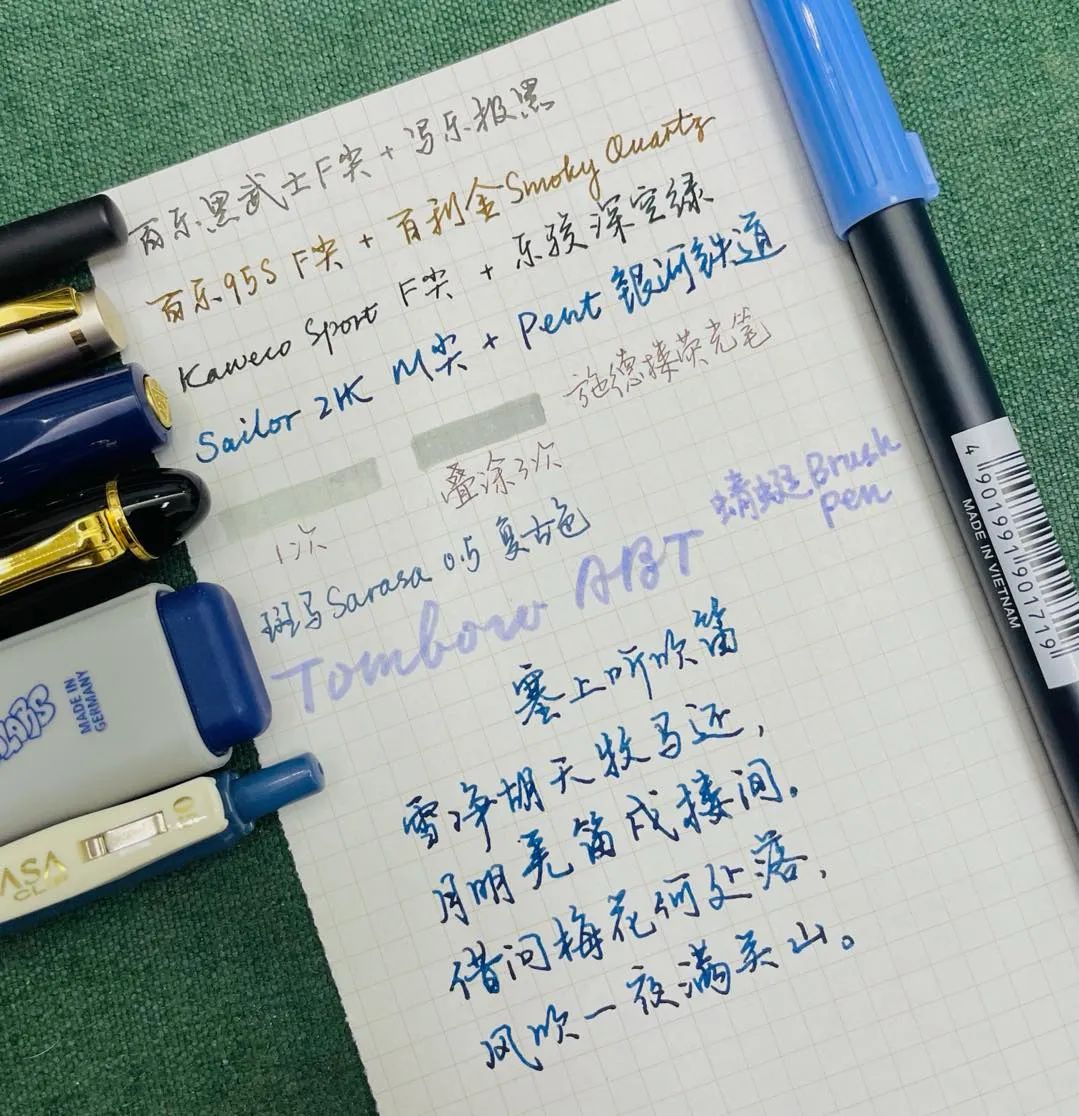 百乐黑武士F尖 + 写乐极黑
百乐95S F尖 + 百利金Smoky Quartz
Kaweco Sport F尖 + 乐骏深空绿
Sailor 21K M尖 + Pent 银河铁道
施德楼荧光笔
叠涂3次
1次
斑马Sarasa 0.5 复古色
蜻蜓Brush
pen
Tombow ABT
塞上听吹笛
雪净胡天牧马还,
月明羌笛戍楼间.
借问梅花何处落,
风吹一夜满关山。
MADE IN
GERMANY
ASA
CL
4 901991 901719
MADE IN VIETNAM